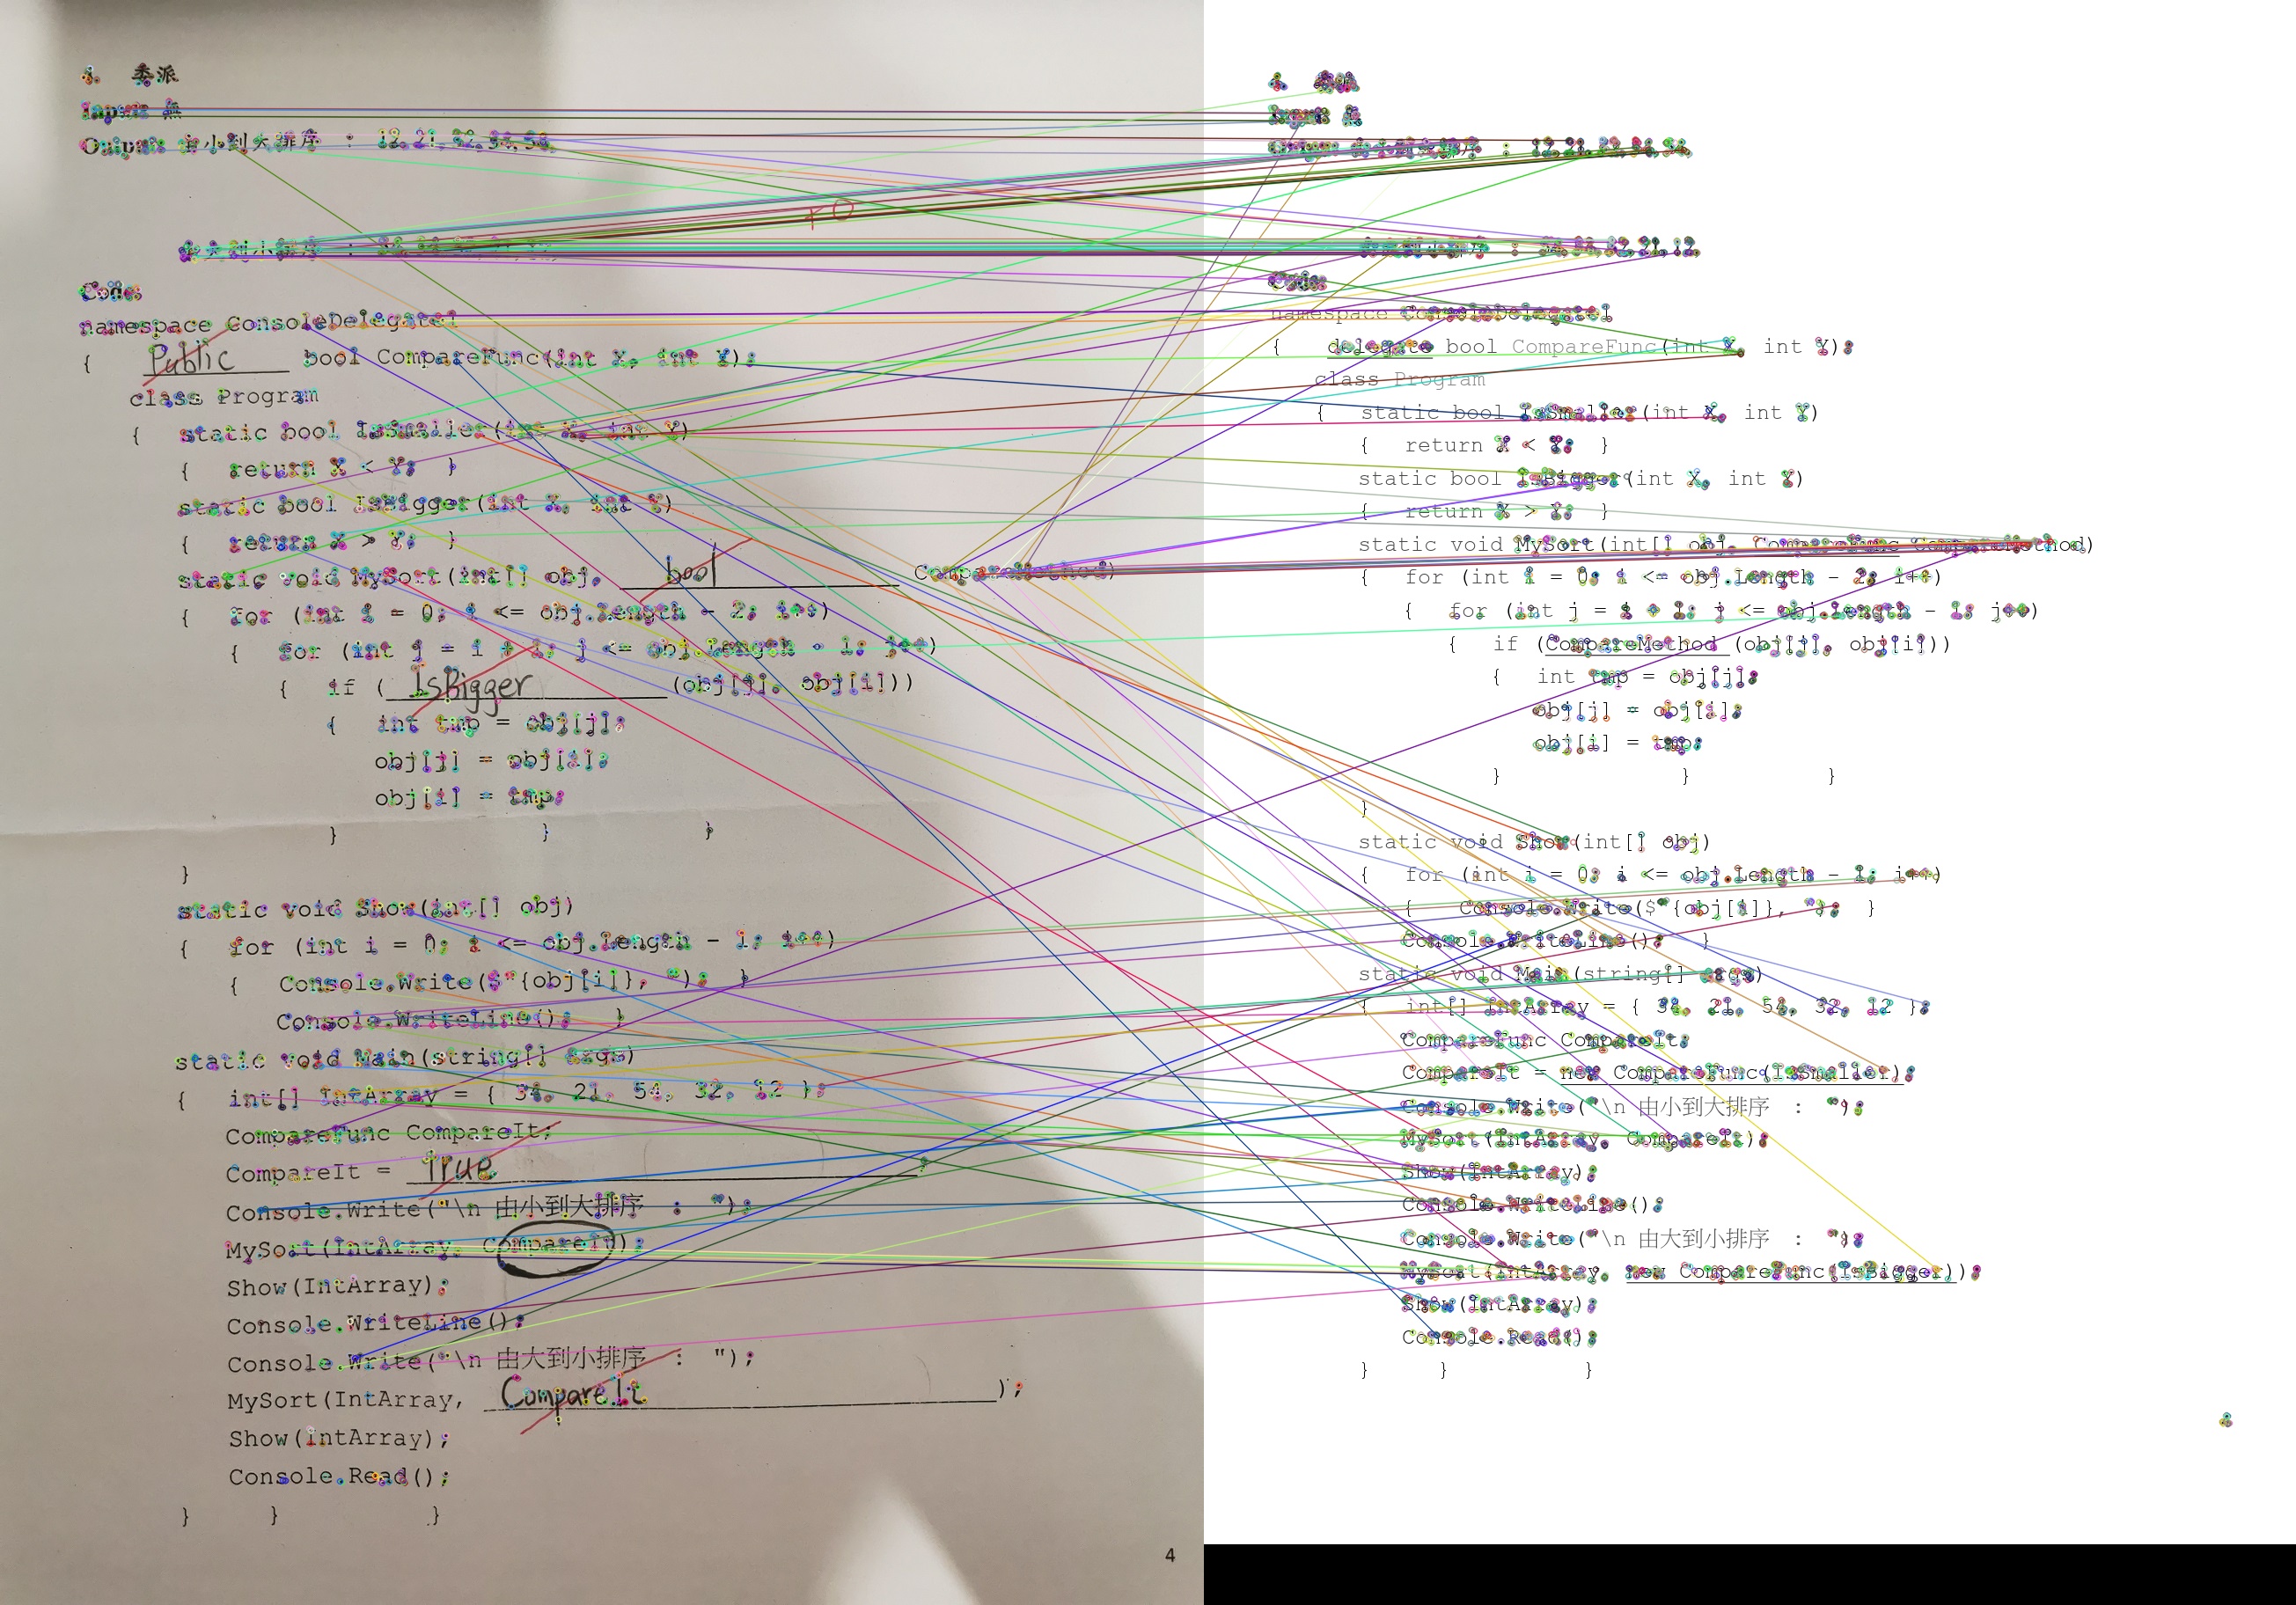 委派
Input: 無
Output: 由小到大排序 : 12,21,32,34,54,
由大到小排序 :
Code:
namespace ConsoleDelegate1
{ Public bool CompareFunc(int X, int Y);
class Program
{ static bool IsSmaller(int X, int Y)
{ return X < Y; }
static bool IsBigger(int X, int Y)
{ return X > Y; }
static void MySort(int[] obj, bool CompareMethod)
{ for (int i = 0; i <= obj.Length - 2; i++)
{ for (int j = i + 1; j <= obj.Length - 1; j++)
{ if ( IsBigger (obj[j], obj[i]))
{ int tmp = obj[j];
obj[j] = obj[i];
obj[i] = tmp;
} } }
}
static void Show(int[] obj)
{ for (int i = 0; i <= obj.Length - 1; i++)
{ Console.Write($"{obj[i]}, "); }
Console.WriteLine(); }
static void Main(string[] args)
{ int[] IntArray = { 34, 21, 54, 32, 12 };
CompareFunc CompareIt;
CompareIt = True ;
Console.Write("\n 由小到大排序 : ");
MySort(IntArray, CompareIt);
Show(IntArray);
Console.WriteLine();
Console.Write("\n 由大到小排序 : ");
MySort(IntArray, CompareIt );
Show(IntArray);
Console.Read();
} } }
4
Code:
namespace ConsoleDelegate1
{ delegate bool CompareFunc(int X, int Y);
class Program
{ static bool IsSmaller(int X, int Y)
{ return X < Y; }
static bool IsBigger(int X, int Y)
{ return X > Y; }
static void MySort(int[] obj, CompareFunc CompareMethod)
{ for (int i = 0; i <= obj.Length - 2; i++)
{ for (int j = i + 1; j <= obj.Length - 1; j++)
{ if (CompareMethod (obj[j], obj[i]))
{ int tmp = obj[j];
obj[j] = obj[i];
obj[i] = tmp;
} } }
}
static void Show(int[] obj)
{ for (int i = 0; i <= obj.Length - 1; i++)
{ Console.Write($"{obj[i]}, "); }
Console.WriteLine(); }
static void Main(string[] args)
{ int[] IntArray = { 34, 21, 54, 32, 12 };
CompareFunc CompareIt;
CompareIt = new CompareFunc(IsSmaller);
Console.Write("\n 由小到大排序 : ");
MySort(IntArray, CompareIt);
Show(IntArray);
Console.WriteLine();
Console.Write("\n 由大到小排序 : ");
MySort(IntArray, new CompareFunc(IsBigger));
Show(IntArray);
Console.Read();
} } }